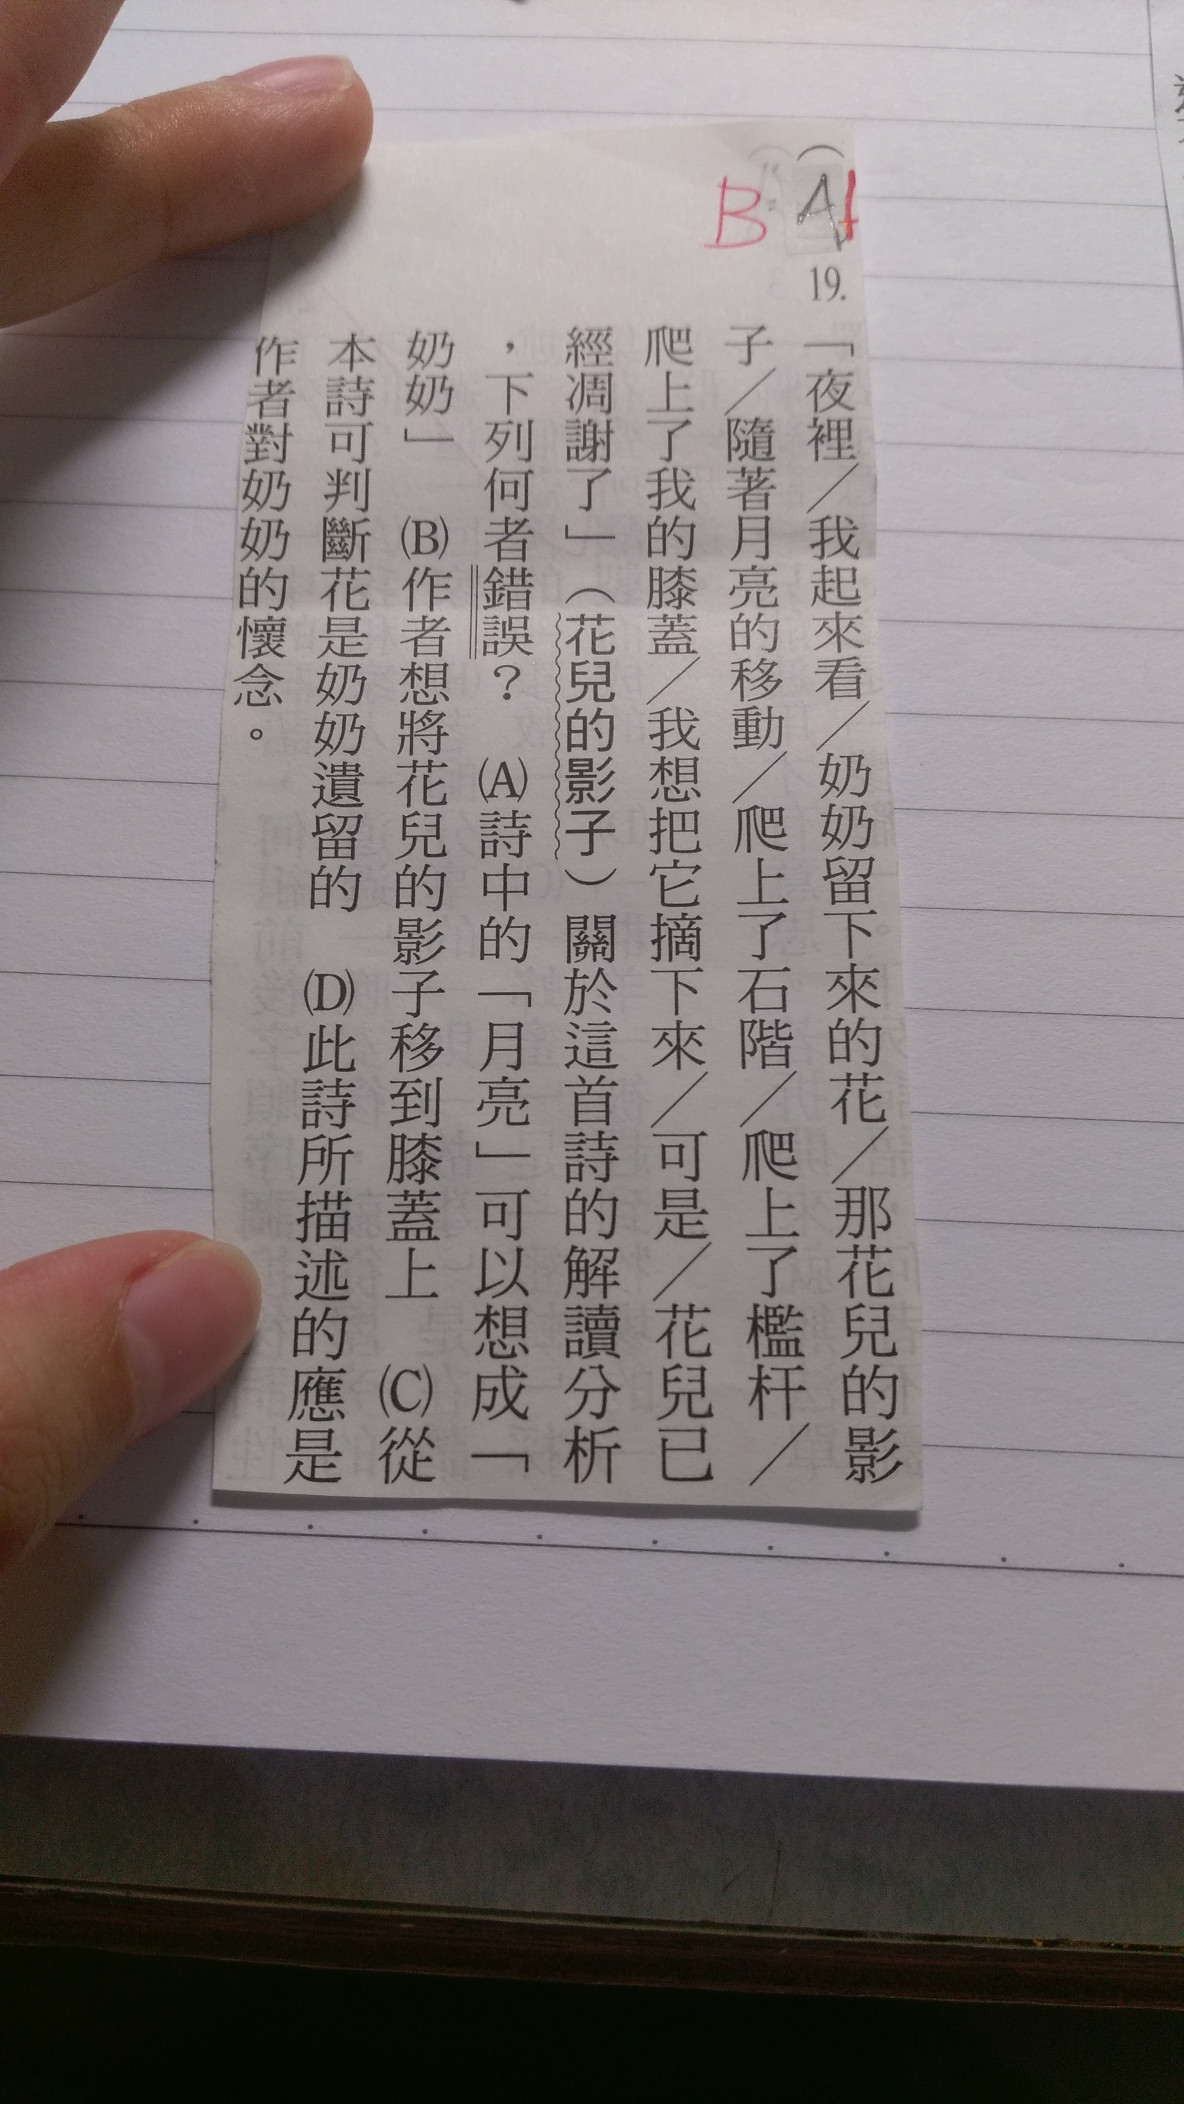 (A
B
19.
「夜裡／我起來看／奶奶留下來的花／那花兒的影
子／隨著月亮的移動／爬上了石階／爬上了檻杆／
爬上了我的膝蓋／我想把它摘下來／可是／花兒已
經凋謝了」(花兒的影子)關於這首詩的解讀分析
，下列何者錯誤？ (A)詩中的「月亮」可以想成「
奶奶」 (B)作者想將花兒的影子移到膝蓋上 (C)從
本詩可判斷花是奶奶遺留的 (D)此詩所描述的應是
作者對奶奶的懷念。